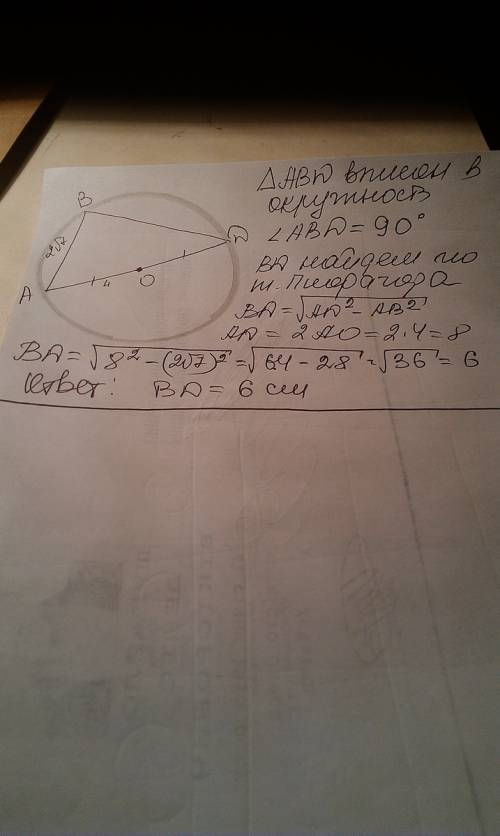 △ABD вписан в
окружность
∠ABD = 90°
BD найдем по
т. Пифагора
BD = √AD² - AB²
AD = 2AO = 2·4 = 8
BD = √8² - (2√7)² = √64 - 28 = √36 = 6
Ответ: BD = 6 см
B
2√7
D
A
4
O